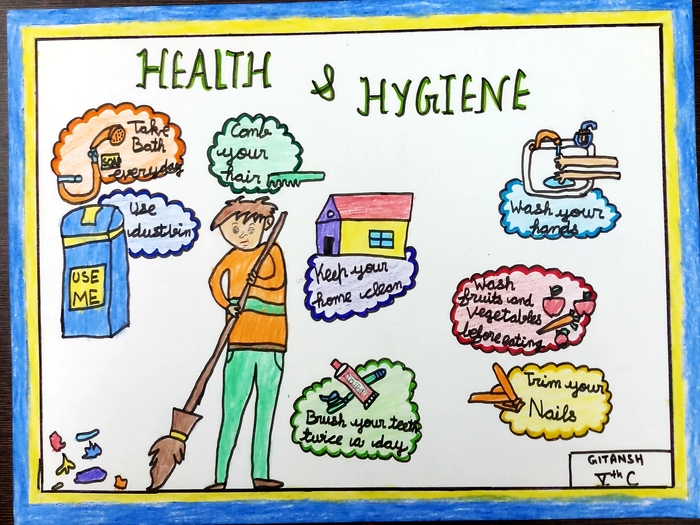 HEALTH & HYGIENE
Take
Bath
everyday
SOAP
Comb
your
hair
Use
dustbin
USE
ME
Keep your
home clean
Wash your
hands
Wash
fruits and
Vegetables
before eating
Brush your teeth
twice a day
Trim your
Nails
GITANSH
Vth C